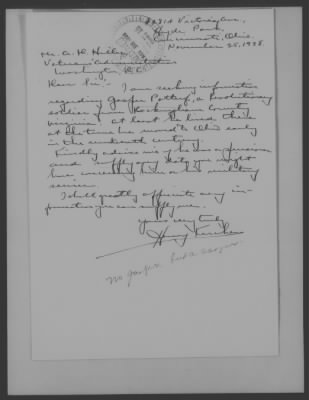 Victory Ave.
Hyde Park
Cincinnati, Ohio.
November 25, 1938.
Veterans Administration
Washington, D.C.
Dear Sir:- I am seeking information
regarding Jasper Potterf, a Revolutionary
soldier from Rockingham County
Virginia at least he lived there
at the time he moved to Ohio early
in the nineteenth century.
Kindly advise me if he was a pensioner
and supply any data you might
have concerning him or his military
service.
I shall greatly appreciate any in-
formation you can supply me.
Yours very truly
Harry
No Jasper but a Casper